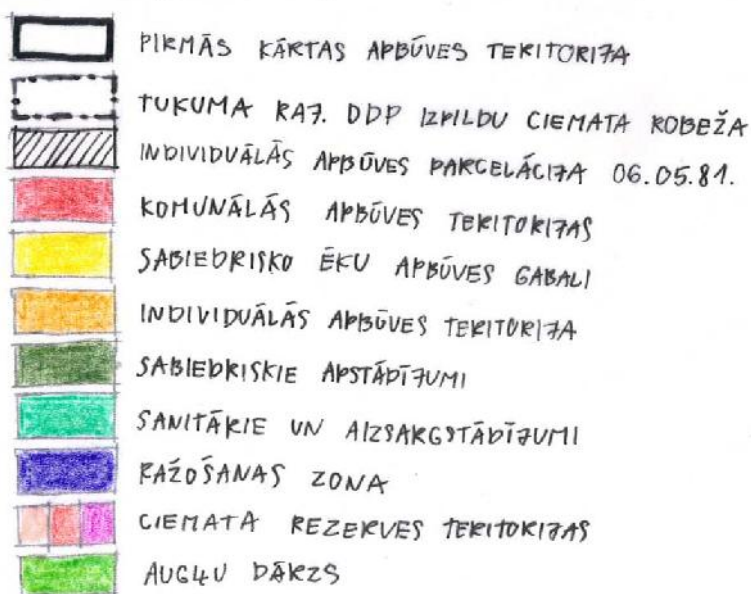 PIRMĀS KĀRTAS APBŪVES TERITORIJA
TUKUMA RAJ. DDP IZPILDU CIEMATA ROBEŽA
INDIVIDUĀLĀS APBŪVES PARCELĀCIJA 06.05.81.
KOMUNĀLĀS APBŪVES TERITORIJAS
SABIEDRISKO ĒKU APBŪVES GABALI
INDIVIDUĀLĀS APBŪVES TERITORIJA
SABIEDRISKIE APSTĀDĪJUMI
SANITĀRIE UN AIZSARGSTĀDĪJUMI
RAŽOŠANAS ZONA
CIEMATA REZERVES TERITORIJAS
AUGĻU DĀRZS